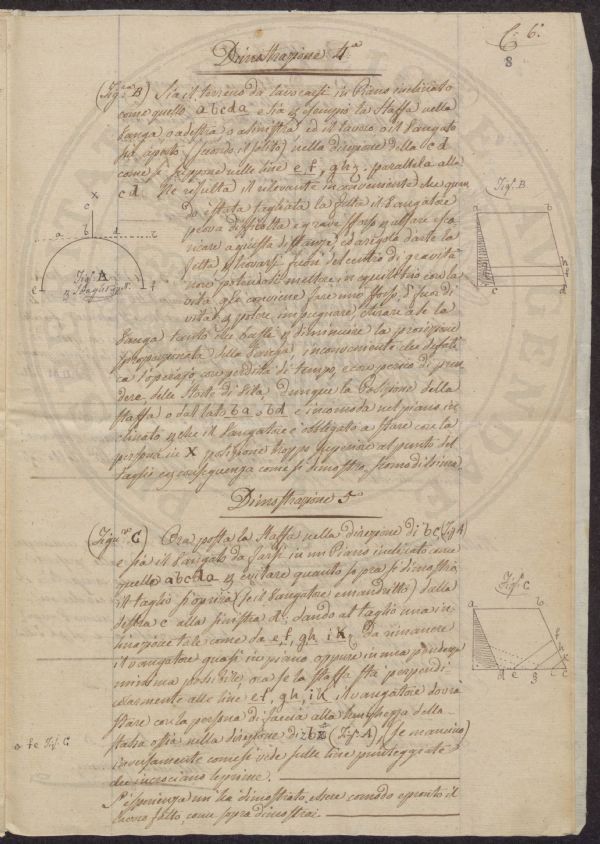 C. 6.
8
Dimostrazione 4.a
(Fig. B) Sia il terreno da lavorarsi in Piano inclinato
come quello abcda e sia p. esempio la Staffa nella
Vanga o a destra o a sinistra ed il lavoro o il Vangato
sia aperto (secondo il solito) nella direzione della cd
come si suppone nelle linee ef, gh, parallela alla
cd. Ne resulta il rilevante inconveniente che quan
do è stata tagliata la fetta il Vangatore
prova difficoltà e grave sforzo p.
fetta
trovarsi fuori del centro di gravità
non potendosi mettere in equilibrio con la
vita gli conviene fare uno sforzo di
vita p. potere impugnare, e tirare a se la
Vanga tanto che basti p. diminuire la porzione
della Vanga, inconveniente che
ca l'operajo con perdita di tempo, e con pericolo di pren
dere delle Storte di Vita, dunque la Posizione della
Staffa o dal lato ba o bd è incomoda nel piano in
clinato p. che il Vangatore è obbligato a stare con la
persona in X posizione troppo superiore al punto del
taglio e in conseguenza come si dimostra, scomodissima.
x
c
a b d
e f
Fig. A
Fig. B
a b
c d
Dimostrazione 5.a
(Figu. C) Ora posta la Staffa nella direzione di bc (Fig. A)
e sia il Vangato da farsi in un Piano inclinato come
quello abcda p. evitare quanto sopra si dimostrò
il taglio si aprirà (se il Vangatore è mandritto) dalla
destra c alla sinistra d, dando al taglio una in
clinazione tale come da ef, gh, ik, Da rimanere
il vangatore quasi in piano oppure in una pendenza
minima possibile, ora se la Staffa sta perpendi
colarmente alle linee ef, gh, ik, il vangatore dovrà
stare con la persona di faccia alla lunghezza della
Staffa ossia nella direzione di (Fig. A), (se mancino)
inversamente come si vede sulle linee punteggiate
che incrociano le prime.
L'esperienza mi ha dimostrato essere comodo e pronto il
lavoro fatto, come sopra dimostrai.
Fig. C
a b
d e g i c
a f e Fig. C